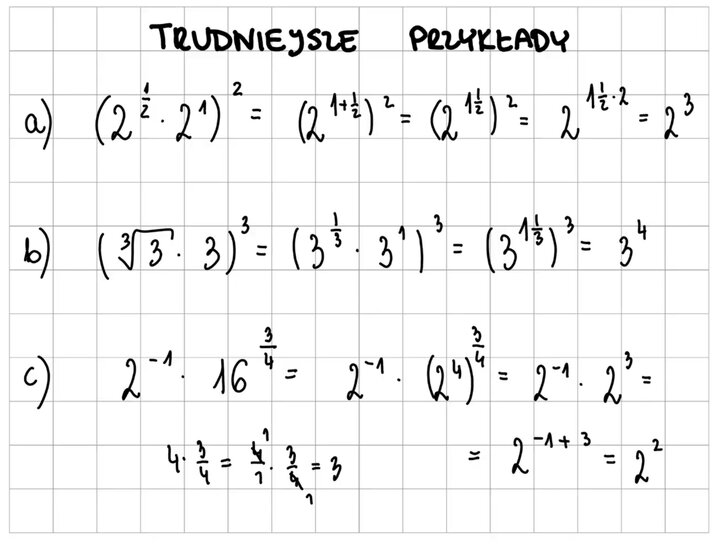 TRUDNIEJSZE PRZYKŁADY
a) (2^{\frac{1}{2}} · 2^1)^2 = (2^{1+\frac{1}{2}})^2 = (2^{1\frac{1}{2}})^2 = 2^{1\frac{1}{2}·2} = 2^3
b) (\sqrt[3]{3} · 3)^3 = (3^{\frac{1}{3}} · 3^1)^3 = (3^{1\frac{1}{3}})^3 = 3^4
c) 2^{-1} · 16^{\frac{3}{4}} = 2^{-1} · (2^4)^{\frac{3}{4}} = 2^{-1} · 2^3 =
4 · \frac{3}{4} = \frac{4}{1} · \frac{3}{4} = 3 = 2^{-1+3} = 2^2